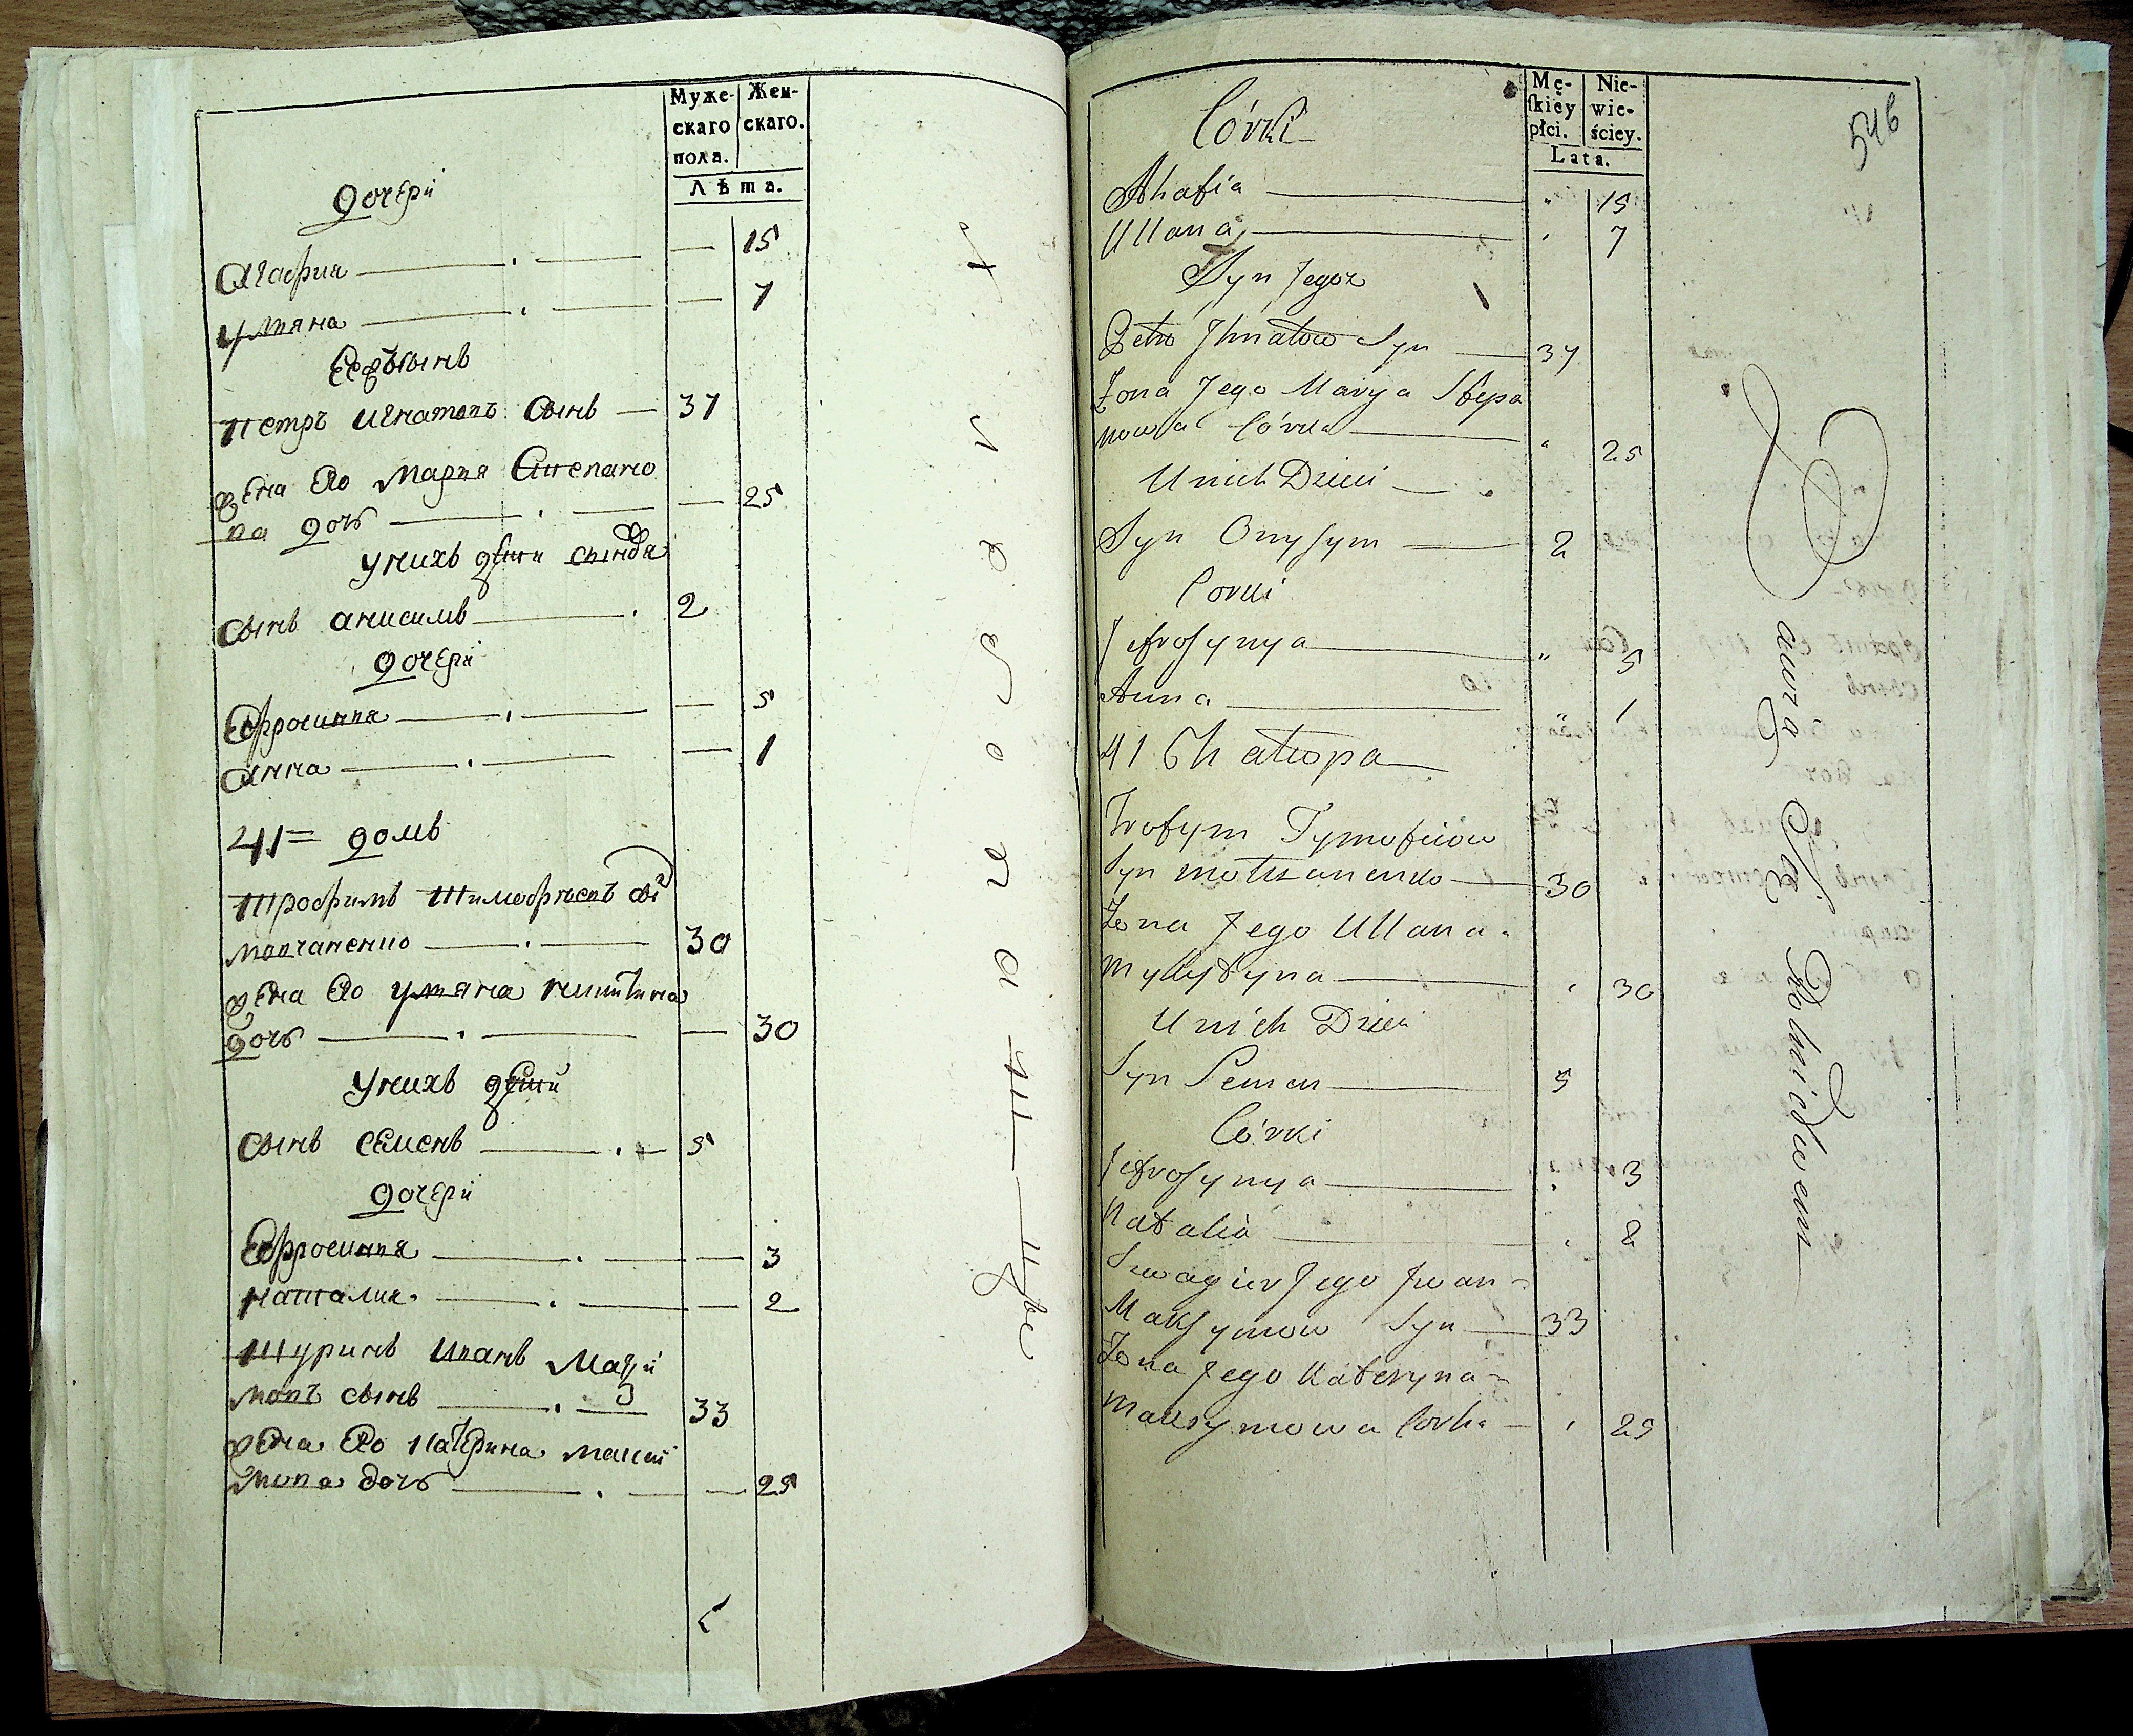 Муже-
скаго
пола.
Жен-
скаго.
Лѣта.
дочери
Агафия — 15
Уляна — 7
Его сынъ
Петръ Игнатовъ сынъ — 37
жена Его Мария Степано
ва дочь — 25
У нихъ дети
сынъ анисимъ — 2
дочери
Ефросиния — 5
Анна — 1
41 = домъ
Трофимъ Тимофеевъ сы
молчаненко — 30
жена Его уляна никитина
дочь — 30
У нихъ дети
сынъ семенъ — 5
дочери
Ефросиния — 3
наталия — 2
Шуринъ Иванъ Макси
мовъ сынъ — 33
жена Его Катерина макси
мова дочь — 25
546
Córki
Mę-
skiéy
płci.
Nie-
wie-
ściey.
Lata.
Ahafia — „ 15
Ullana — „ 7
Syn Jego
Petro Ihnatow Syn — 37
Żona Jego Marya Stepa
nowa Córka — „ 25
U nich Dzieci
Syn Onysym — 2
Corki
Jefrosynya — „ 5
Anna — „ 1
41 Chatopa
Trofym Tymofiiow
Syn motczanenko — 30
Żona Jego Ullana
Mykytyna — „ 30
U nich Dzieci
Syn Semen — 5
Córki
Jefrosynya — „ 3
Natalia — „ 2
Szwagier Jego Iwan =
Maksymow Syn — 33
Żona Jego Kateryna =
Maksymowa Corka — „ 25
Bawią Się Rolnictwem